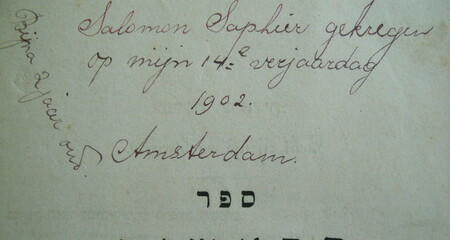 Salomon Saphier gekregen
op mijn 14e verjaardag
1902.
Amsterdam.
Bijna 2 jaar oud.
ספר